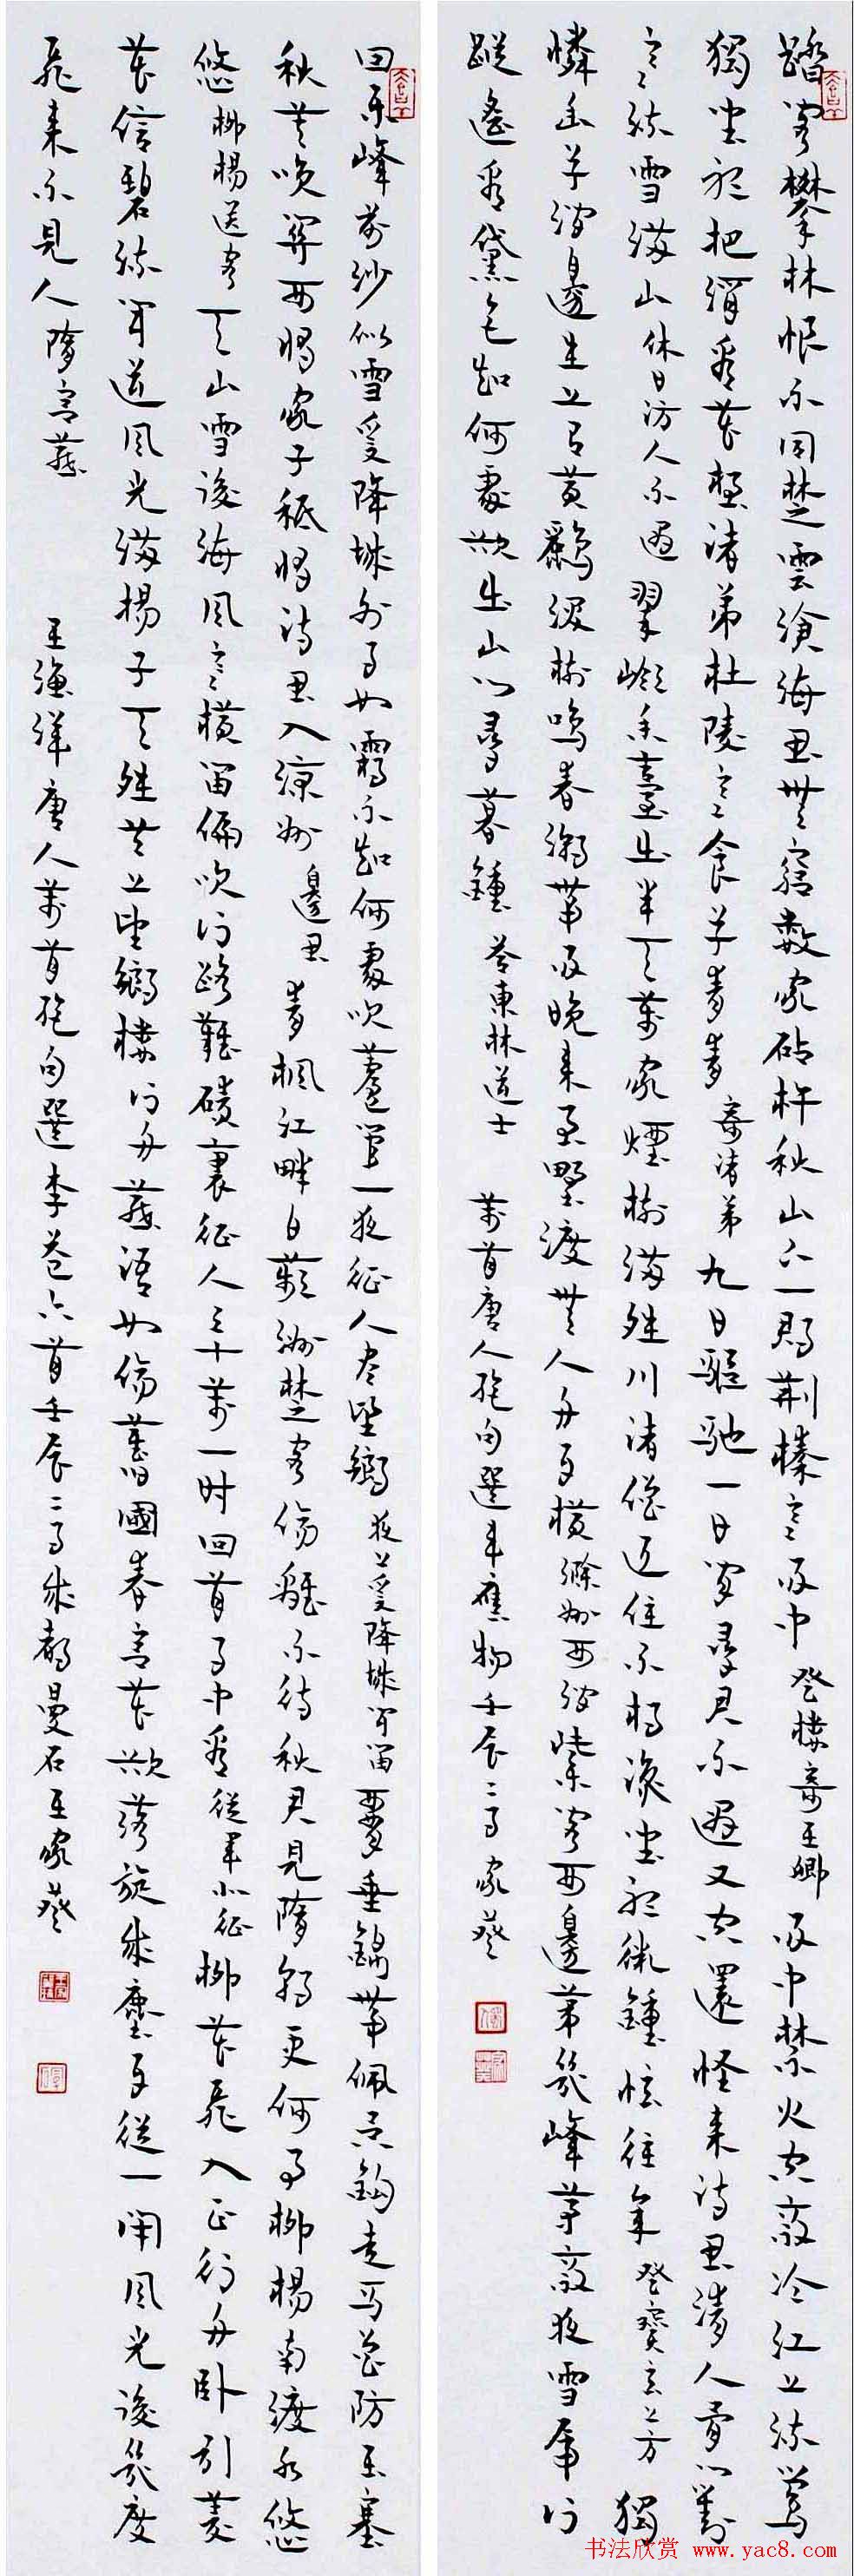 踏閣攀林恨不同楚雲滄海思無窮數家砧杵秋山下一郡荊榛寒雨中 登樓寄王卿 雨中禁火空齋冷江上流鶯
獨坐聽把酒看花想諸弟杜陵寒食草青青 寄諸弟 九日驅馳一日閒尋君不遇又空還怪來詩思清人骨門對
寒流雪滿山 休日訪人不遇 翠嶺香臺出半天萬家煙樹滿晴川諸僧近住不相識坐聽微鐘憶往年 登寶意上方 獨
憐幽草澗邊生上有黃鸝深樹鳴春潮帶雨晚來急野渡無人舟自橫 滁州西澗 紫閣西邊第幾峰茅齋夜雪虎行
蹤遙看黛色知何處欲出山門尋暮鐘 答東林道士 萬首唐人絕句選韋應物壬辰二月家葵
回樂峰前沙似雪受降城外月如霜不知何處吹蘆管一夜征人盡望鄉 夜上受降城聞笛 腰垂錦帶佩吳鉤走馬曾防玉塞
秋莫笑關西將家子秖將詩思入涼州 邊思 青楓江畔白蘋洲楚客傷離不待秋君見隋朝更何事柳楊南渡水悠
悠 柳楊送客 天山雪後海風寒橫笛偏吹行路難磧裏征人三十萬一時回首月中看 從軍北征 柳花飛入正行舟臥引菱
花信碧流聞道風光滿揚子天晴共上望鄉樓 行舟 燕語如傷舊國春宮花欲落旋成塵自從一閉風光後幾度
飛來不見人 隋宮燕 王漁洋唐人萬首絕句選李益六首壬辰二月成都曼石王家葵
书法欣赏 www.yac8.com